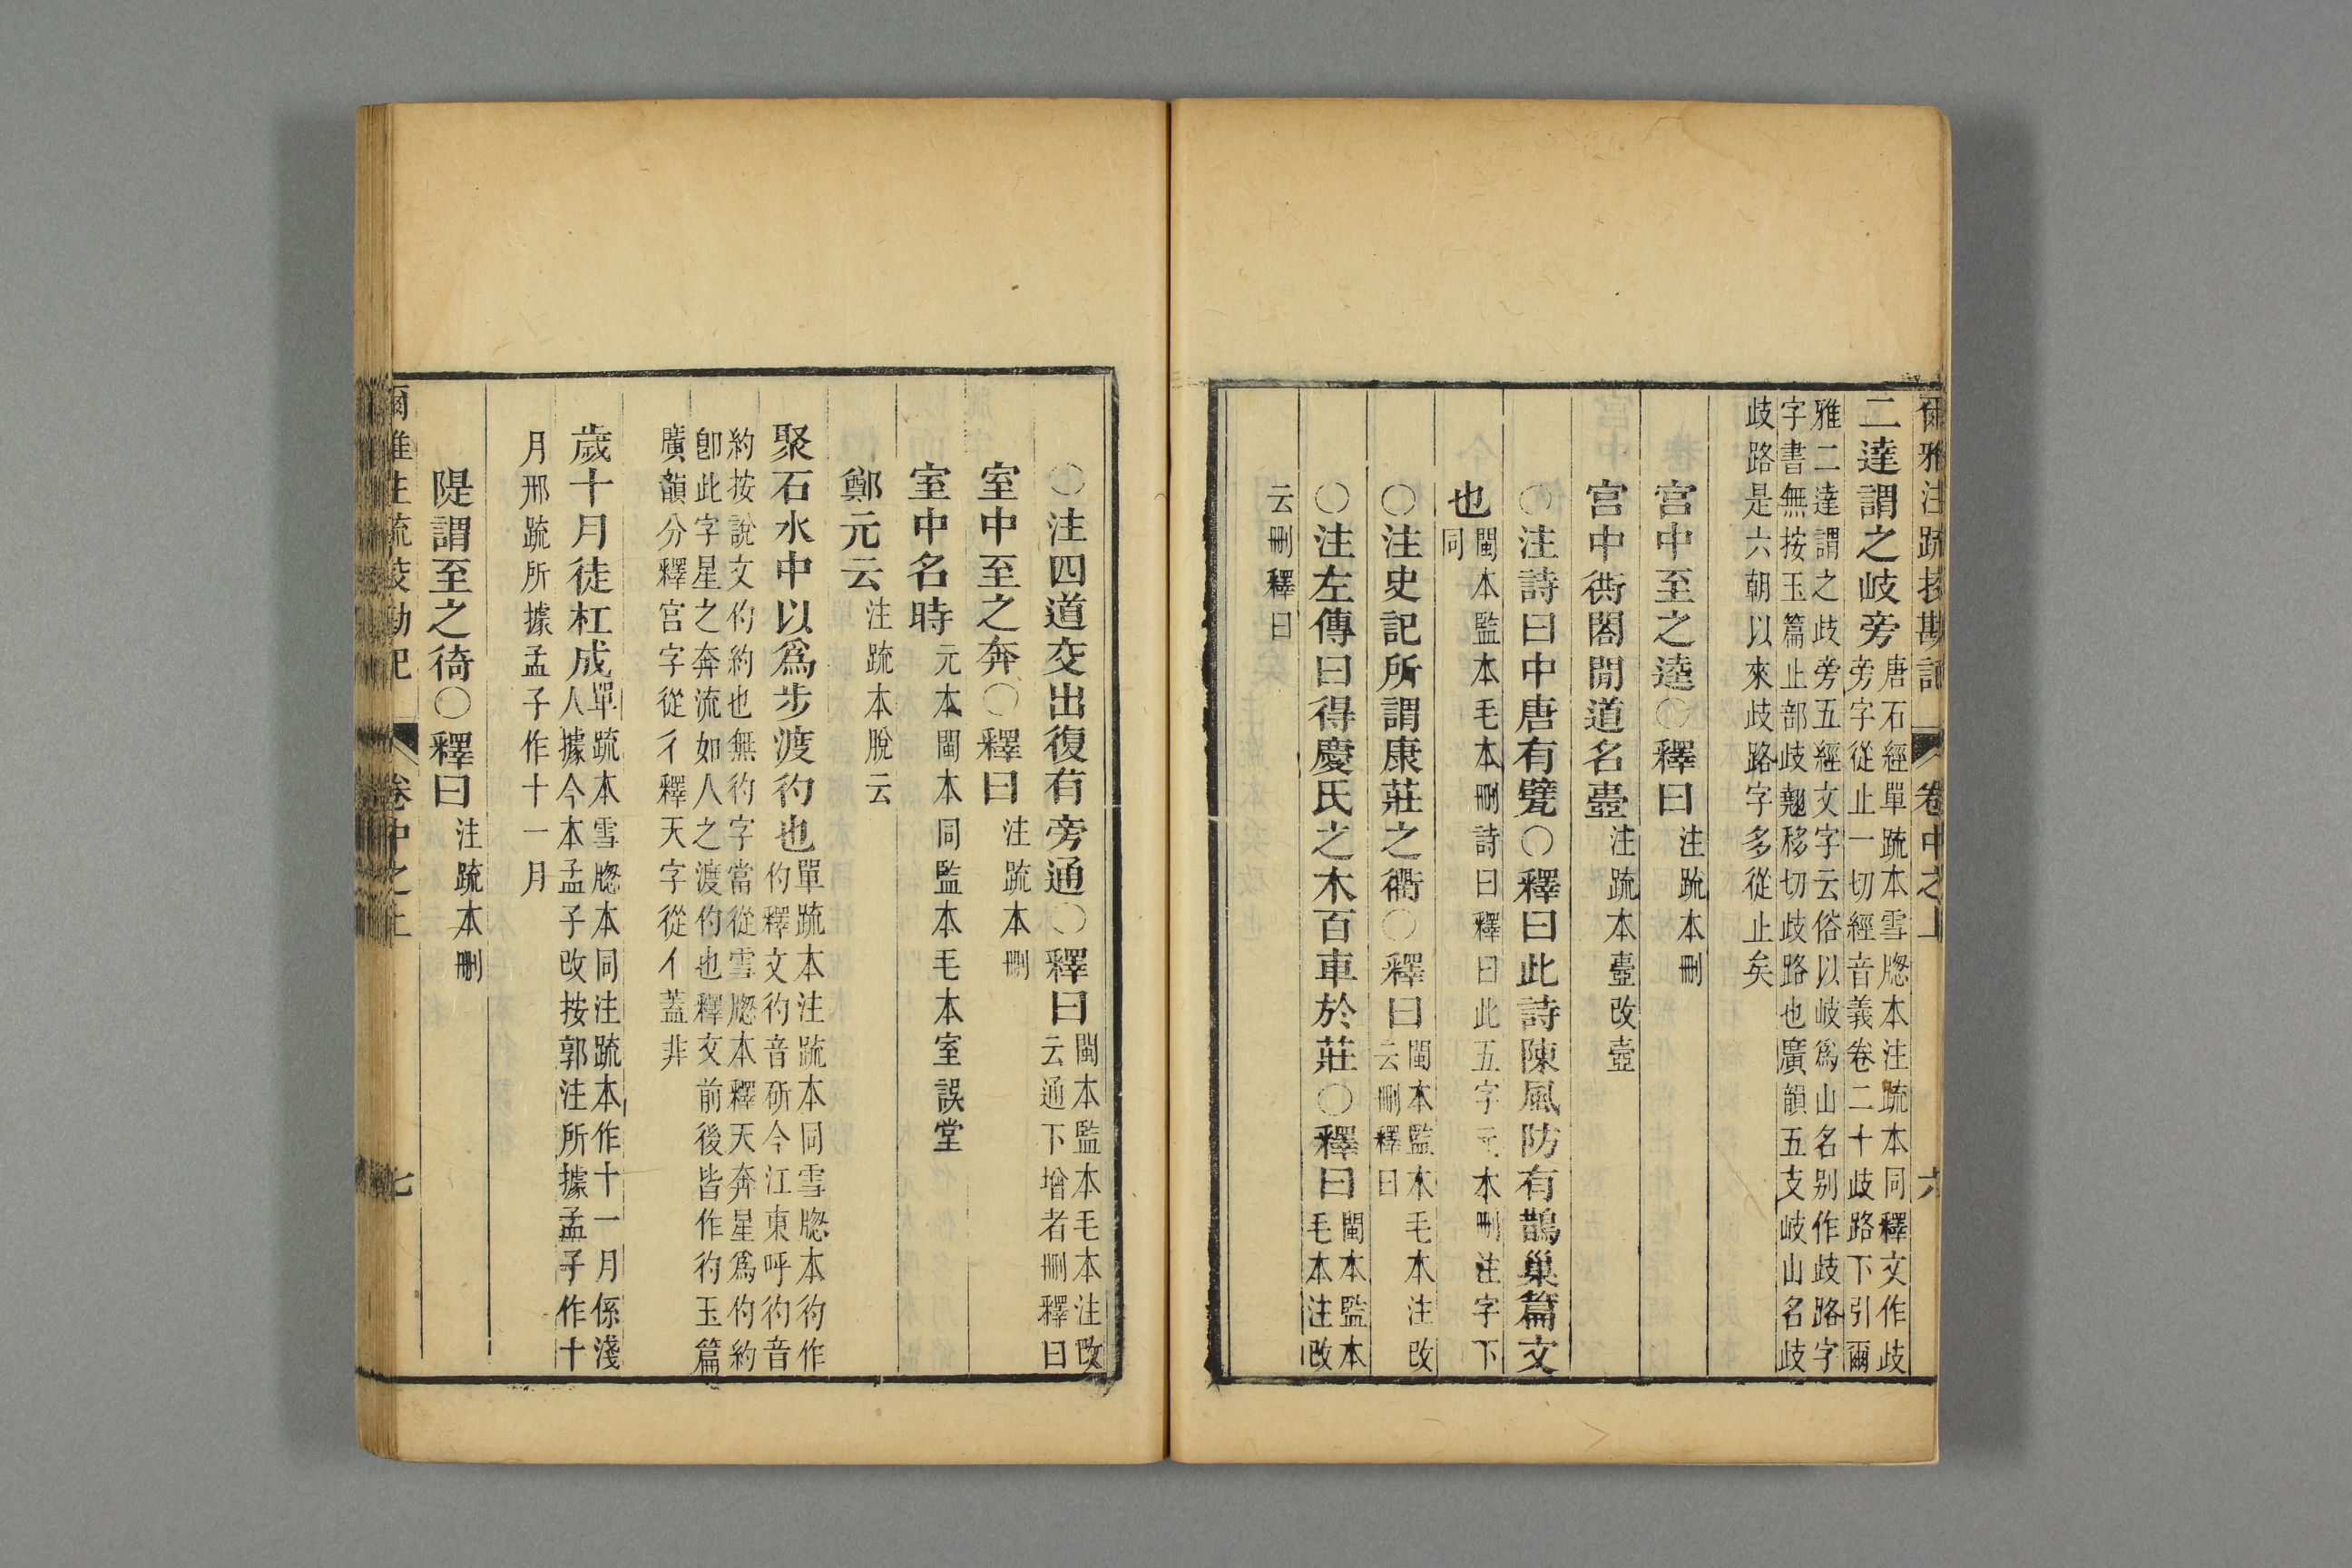 爾雅注疏挍勘記 卷中之上 六
二達謂之岐旁
唐石經單疏本雪牕本注疏本同釋文作歧
旁字從止一切經音義卷二十歧路下引爾
雅二達謂之歧旁五經文字云俗以岐爲山名别作歧路字
字書無按玉篇止部歧翹移切歧路也廣韻五支岐山名歧
歧路是六朝以來歧路字多從止矣
宫中至之逵○釋曰
注疏本刪
宫中衖閤閒道名壼
注疏本壼改壺
○注詩曰中唐有甓○釋曰此詩陳風防有鵲巢篇文
也
閩本監本毛本刪詩曰釋曰此五字元本刪注字下
同
○注史記所謂康莊之衢○釋曰
閩本監本毛本注改
云刪釋曰
○注左傳曰得慶氏之木百車於莊○釋曰
閩本監本
毛本注改
云刪釋曰
○注四道交出復有旁通○釋曰
閩本監本毛本注改
云通下增者刪釋曰
室中至之奔○釋曰
注疏本刪
室中名時
元本閩本同監本毛本室誤堂
鄭元云
注疏本脫云
聚石水中以爲步渡彴也
單疏本注疏本同雪牕本彴作
仢釋文彴音斫今江東呼彴音
約按說文仢約也無彴字當從雪牕本釋天奔星爲仢約
卽此字星之奔流如人之渡仢也釋文前後皆作彴玉篇
廣韻分釋宫字從彳釋天字從亻蓋非
歲十月徒杠成
單疏本雪牕本同注疏本作十一月係淺
人據今本孟子改按郭注所據孟子作十
月邢疏所據孟子作十一月
隄謂至之徛○釋曰
注疏本刪
爾雅注疏挍勘記 卷中之上 七